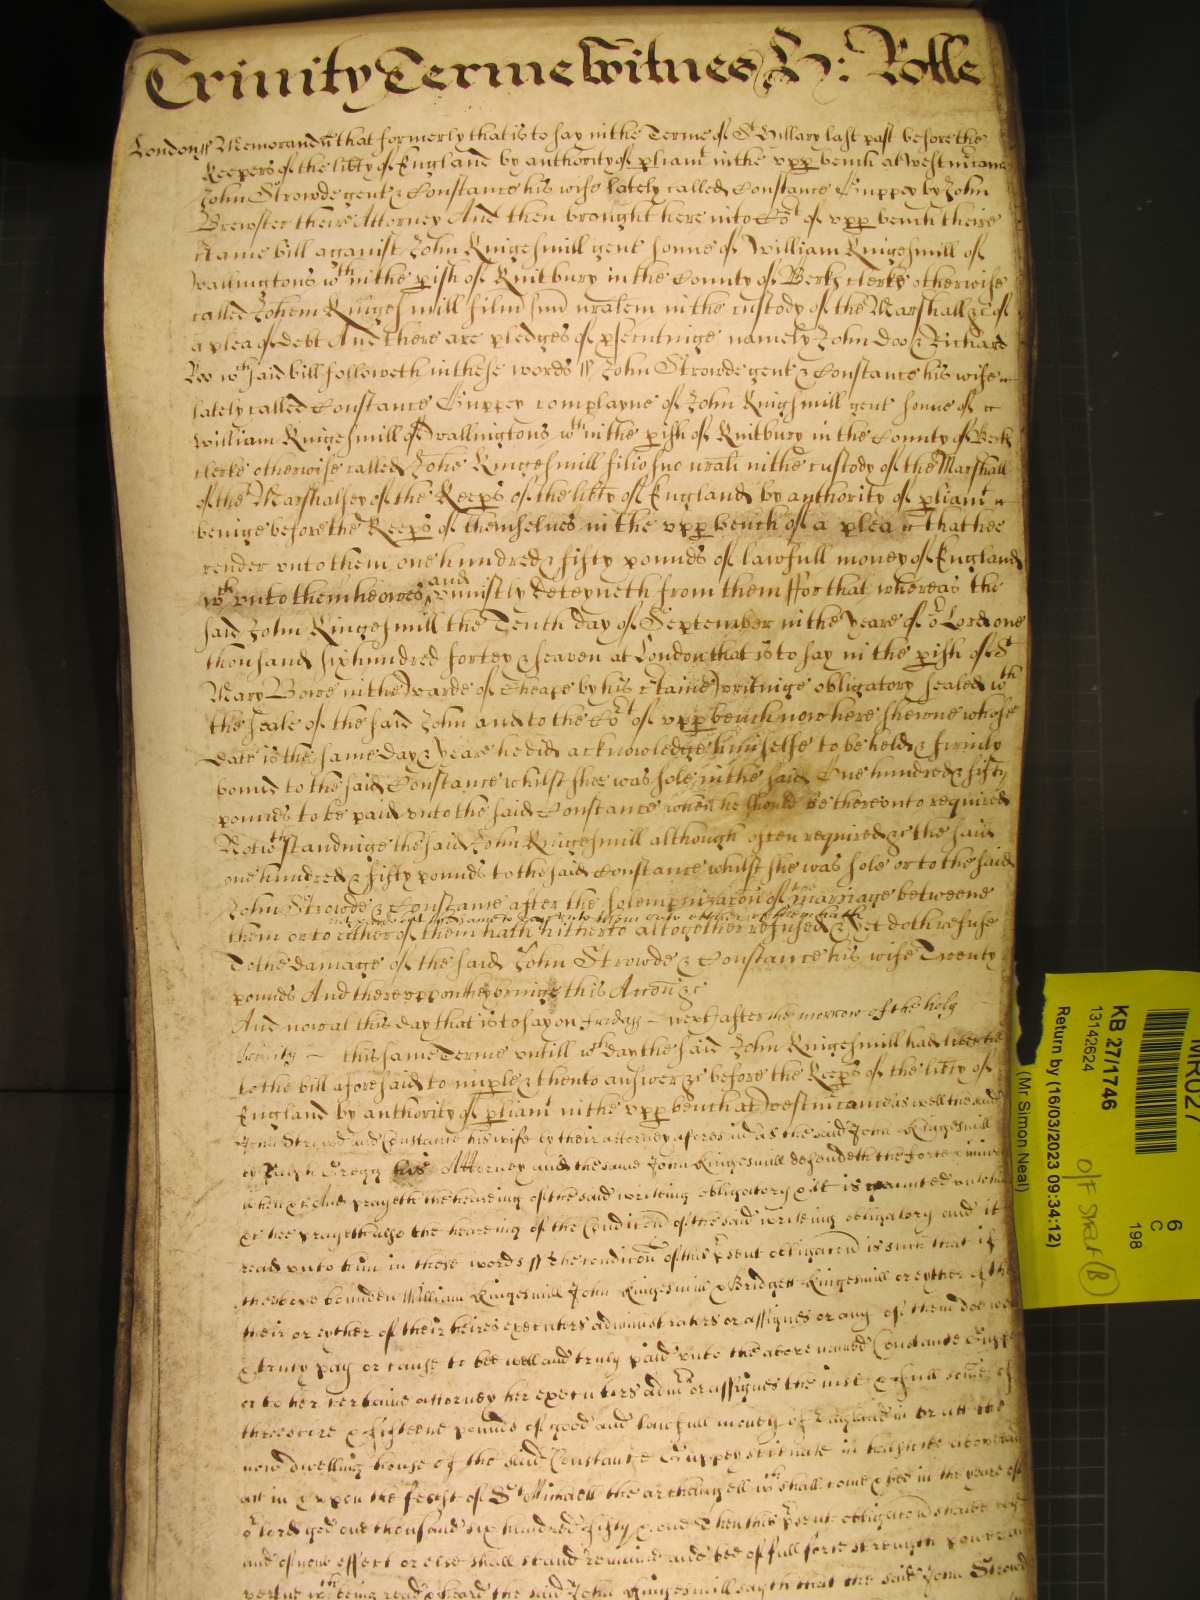 Trinity Terme Witnes H: Rolle
London ss Memorand that formerly that is to say in the Terme of St Hillary last past before the
Keepers of the libty of England by authority of pliamt in the upp bench at Westm came
John Strowde gent & Constance his wife lately called Constance Guppey by John
Brewster theire Attorney And then brought here into Cot of upp bench theire
ctaine bill against John Kingesmill gent sonne of William Kingesmill of
Wallingtons wth in the pish of Kintbury in the County of Berks clerke otherwise
called Johem Kingesmill filiu suu nralem in the custody of the Marshall &c of
a plea of debt And there are pledges of psecutinge namely John Doo & Richard
Roo wch said bill followeth in these words ss John Strowde gent & Constance his wife
lately called Constance Guppey complayne of John Kingsmill gent sonne of
William Kingesmill of Wallingtons wth in the pish of Kintbury in the County of Berk
clerke otherwise called Johe Kingesmill filio suo nrali in the custody of the Marshall
of the Marshalsey of the Keeps of the libty of England by authority of pliamt
beinge before the Keeps of themselves in the upp bench of a plea that hee
render unto them one hundred & fifty pounds of lawfull money of England
wch unto them he owes and uniustly deteyneth from them ffor that whereas the
said John Kingesmill the Tenth day of September in the yeare of or Lord one
thousand six hundred fortey & seaven at London that is to say in the pish of St
Mary Bowe in the Warde of Cheape by his ctaine writinge obligatory sealed wth
the seale of the said John and to the Cot of upp bench now here shewne whose
date is the same day & yeare he did acknowledge himselfe to be held & firmly
bound to the said Constance whilst shee was sole in the said One hundred & fifty
pounds to be paid unto the said Constance when he should be thereunto required
Notwthstandinge the said John Kingesmill although often required &c the said
one hundred & fifty pounds to the said Constance whilst she was sole or to the said
John Strowde & Constance after the solempnizacon of the marriage betweene
them or to either of them hath hitherto altogether refused & yet doth refuse
To the damage of the said John Strowde & Constance his wife Twenty
pounds And thereuppon they bringe this Accon &c
And now at this day that is to say on Friday next after the morrow of the holy
Trinity this same Terme untill wch day the said John Kingesmill had
to the bill aforesaid to imple & then to answer &c before the Keeps of the libty of
England by authority of pliamt in the upp bench at Westm came as well the said
John Strowd and Constance his wife by their attorney aforesaid as the said John Kingesmill
by Ralph Gregg his Attorney and the same John Kingesmill defendeth the force &
when &c And prayeth the heareing of the said writeing obligatory & it is graunted unto him
&c hee prayeth also the heareing of the Condicon of the said writeing obligatory and it
read unto him in these words ss The condicon of this psent obligacon is such that if
the above bounden William Kingesmill John Kingesmill & Bridgett Kingesmill or eyther of them
their or eyther of their heires executors administrators or assignes or any of them doe well
& truly pay or cause to bee well and truly paid unto the above named Constance Guppe
or to her certaine attorney her executors admrs or assignes the iust & full some of
threescore & fifteene pounds of good and lawfull money of England in or att the
now dwelling house of the said Constance Guppey scituate in
att in & upon the feast of St Michaell the archangell wch shall come & bee in the yeare of
or lord god one thousand six hundred fifty & one Then this psent obligacon shalbe voyd
and of none effect or else shall stand remaine and bee of full force strength power and
vertue wch being read & heard the said John Kingesmill sayth that the said John Strowd
MR027
KB 27/1746
13142624
Return by (16/03/2023 09:34:12)
(Mr Simon Neal)
6
C
198
O/F Shelf B